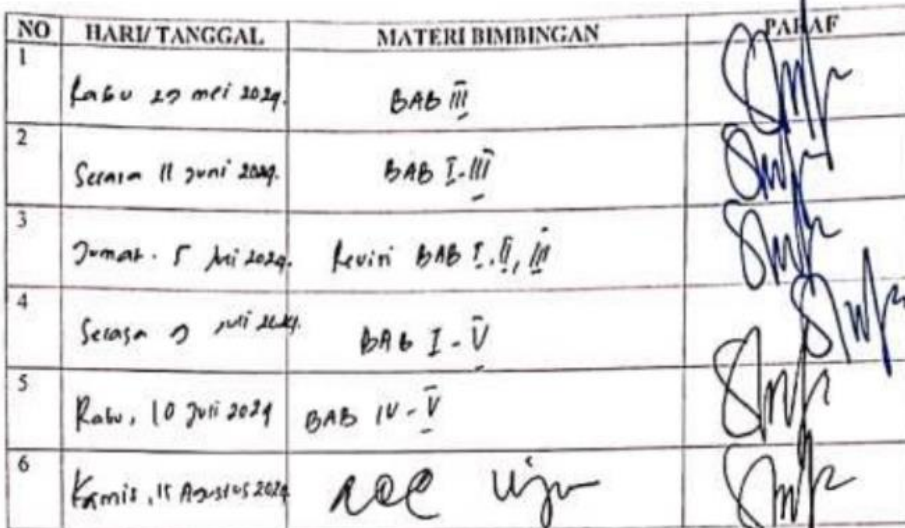 NO HARI/TANGGAL MATERI BIMBINGAN PARAF
1
Rabu 29 mei 2024. BAB III
2
Selasa 11 Juni 2024. BAB I-III
3
Jumat. 5 Juli 2024. Revisi BAB I, II, III
4
Selasa 9 Juli 2024. BAB I - V
5
Rabu, 10 Juli 2024 BAB IV - V
6
Kamis, 15 Agustus 2024 ACC Ujian